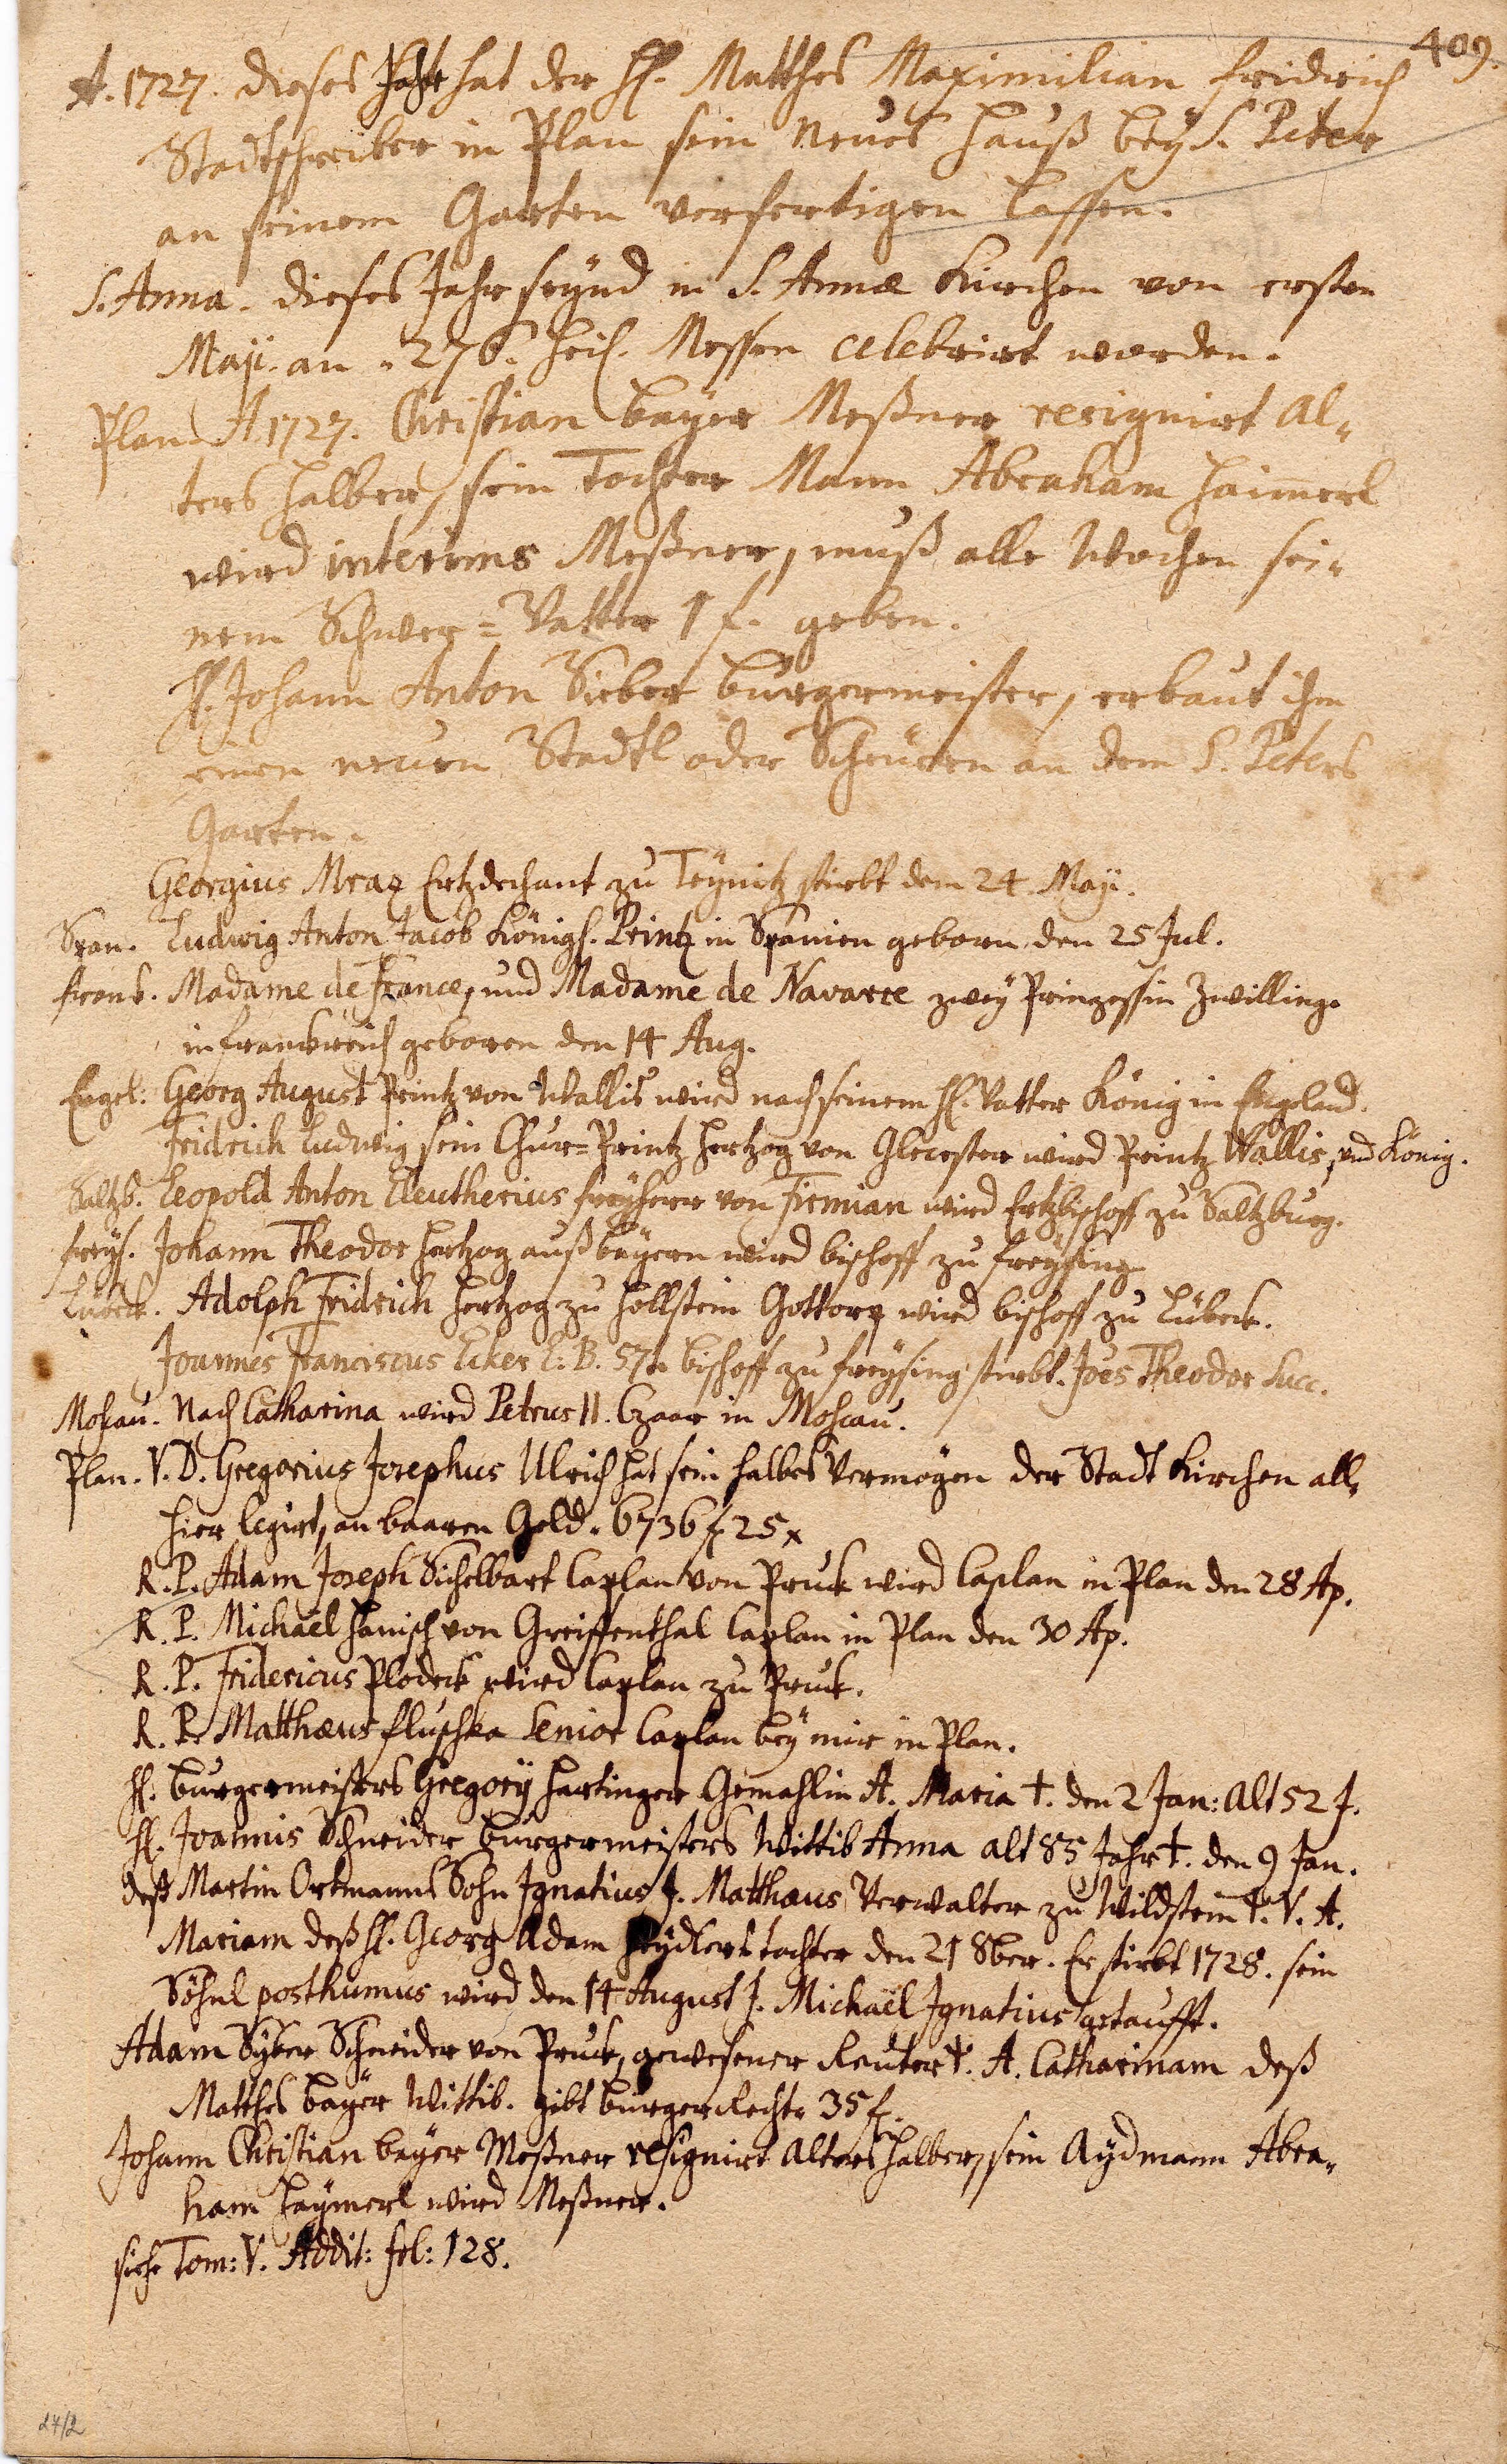 409.
A. 1727. dieses Jahr hat der H. Matthes Maximilian Fridrich
Stadtschreiber in Plan sein neues Hauß beÿ S. Peter
an seinem Garten verfertigen lassen.
S. Anna. dieses Jahr seÿnd in S. Annæ Kirchen von ersten
Maji. an. 276. heil. Messen celebrirt worden.
Plan. A. 1727. Christian Baÿer Meßner resignirt Al-
ters halber, sein Tochter Mann Abraham Haimerl
wird interims Meßner, muß alle Wochen sei-
nem Schwer=Vatter 1 f. geben.
H. Johann Anton Sieber Burgermeister, erbaut ihm
einen neuen Stadtl oder Scheuern an dem S. Peters
Garten.
Georgius Mraz Ertzdechant zu Teÿnitz stirbt dem 24 Maji.
Span. Ludwig Anton Jacob Königl. Printz in Spanien geborn den 25 Jul.
Frank. Madame de France, und Madame de Navarre zweÿ Prinzessin Zwillinge
in Franckreich geboren den 14 Aug.
Engel: Georg August Printz von Wallis wird nach seinem H. Vatter König in Engeland.
Fridrich Ludwig sein Chur=Printz Hertzog von Glocester wird Printz Wallis, und König.
Saltzb. Leopold Anton Eleutherius Freÿherr von Firmian wird Ertzbischoff zu Saltzburg.
Freÿs. Johann Theodor Hertzog auß Baÿern wird Bischoff zu Freÿsing
Lübeck. Adolph Fridrich Hertzog zu Hollstein Gottorp wird Bischoff zu Lübeck.
Joannes Franciscus Ecker L. B. 57te Bischoff zu Freÿsing stirbt. Joes Theodor Succ.
Moscau. Nach Catharina wird Petrus II. Czaar in Moscau.
Plan. V. D. Gregorius Josephus Ulrich hat sein halbes Vermögen der Stadt Kirchen all-
hier legirt, an baaren Geld. 6736 f. 25 x
R. P. Adam Joseph Sichelbart Caplan von Pruck wird Caplan in Plan den 28 Ap.
R. P. Michaël Hanisch von Greiffenthal Caplan in Plan den 30 Ap.
R. P. Fridericus Plodeck wird Caplan zu Pruck.
R. P. Matthæus Fluschka Senior Caplan beÿ mir in Plan.
H. Burgermeisters Gregorÿ Hartinger Gemahlin A. Maria †. den 2 Jan: Alt 52 J.
H. Joannis Schneider Burgermeisters Wittib Anna alt 85 Jahr †. den 9 Jan.
deß Martin Ortmanns Sohn Ignatius J. Matthæus Verwalter zu Wildstein T. V. A.
Mariam deß H. Georg Adam Heÿdlers tochter den 21 8ber. Er stirbt 1728. sein
Söhnl posthumus wird den 14 August J. Michaël Ignatius getaufft.
Adam Sÿber Schneider von Pruck, gewesener Reuter T. A. Catharinam deß
Matthes Baÿer Wittib. gibt Burger Recht 35 f.
Johann Christian Baÿer Meßner resignirt Alters halber, sein Aÿdmann Abra-
ham Haÿmerl wird Meßner.
siehe Tom: V. Addit: fol: 128.